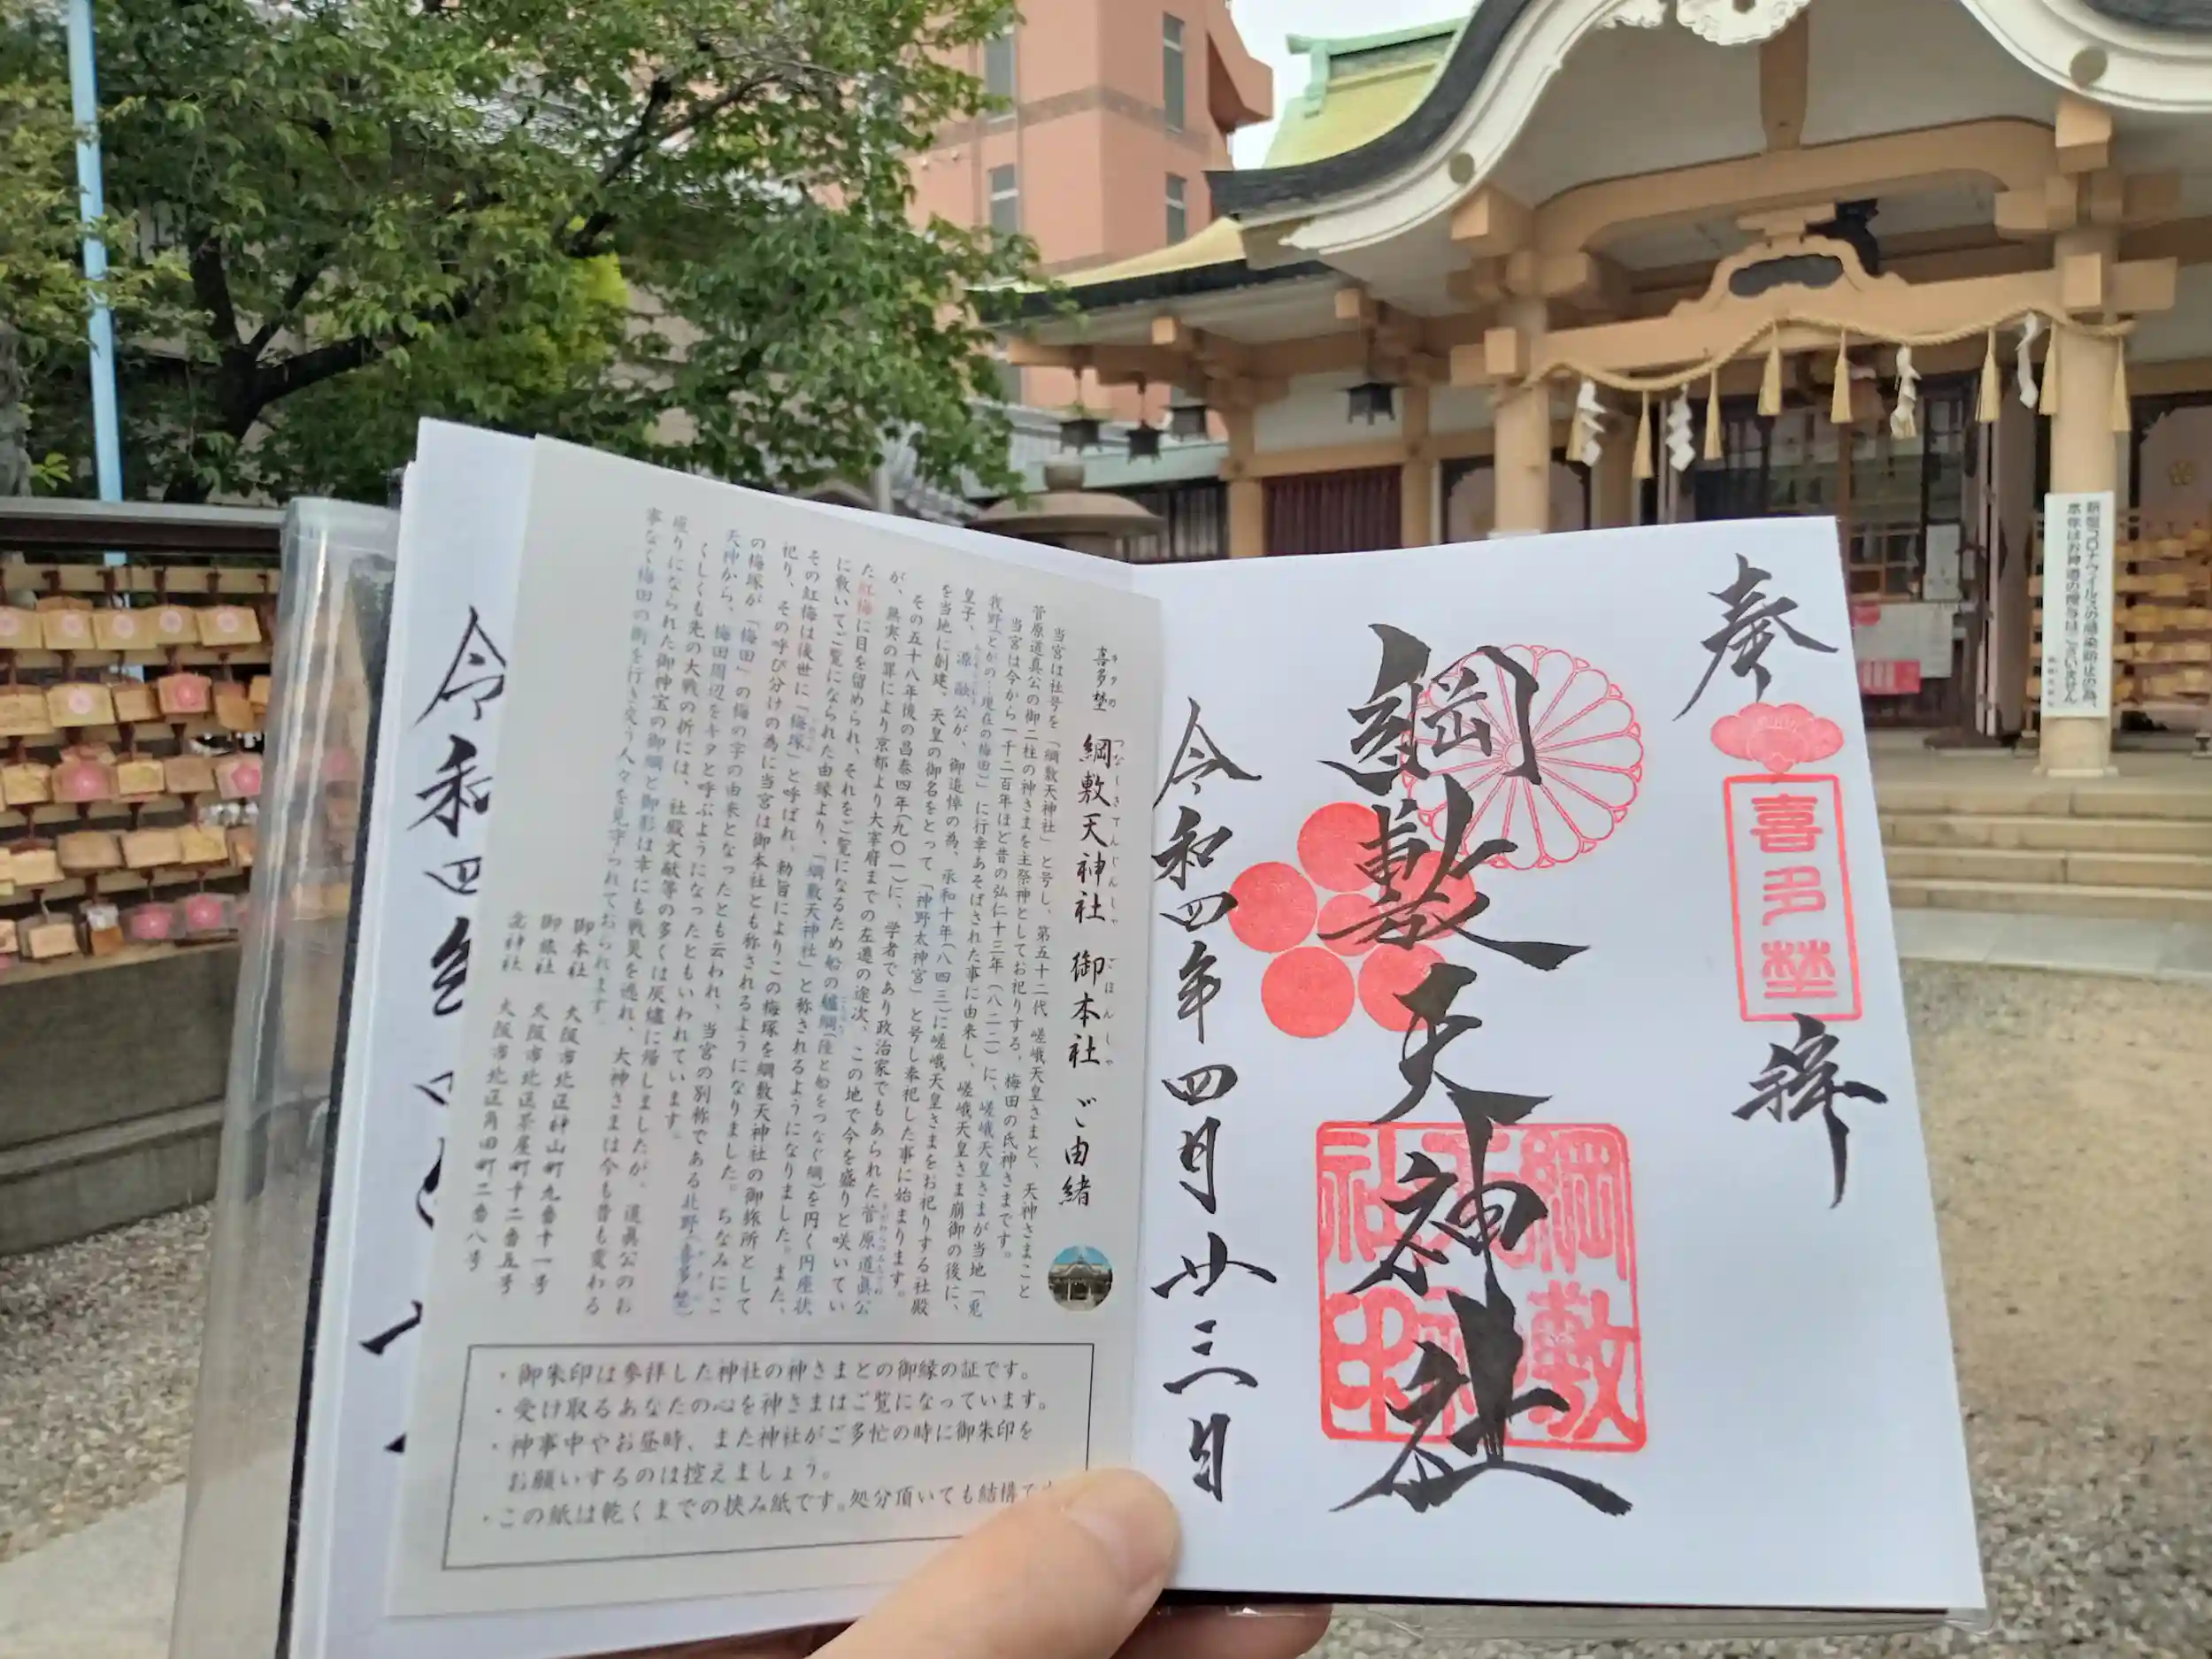 奉
喜多埜
拝
綱敷天神社
綱敷天神社
令和四年四月廿三日
喜多埜 綱敷天神社 御本社 ご由緒
キタの
つなしきてんじんしゃ ごほんしゃ
当宮は社号を「綱敷天神社」と号し、第五十二代 嵯峨天皇さまと、天神さまこと
菅原道真公の御二柱の神さまを主祭神としてお祀りする、梅田の氏神さまです。
当宮は今から一千二百年ほど昔の弘仁十三年(八二二)に、嵯峨天皇さまが当地「兎
我野(とがの…現在の梅田)」に行幸あそばされた事に由来し、嵯峨天皇さま崩御の後に、
皇子、源 融公が、御追悼の為、承和十年(八四三)に嵯峨天皇さまをお祀りする社殿
を当地に創建、天皇の御名をとって「神野太神宮」と号し奉祀した事に始まります。
その五十八年後の昌泰四年(九〇一)に、学者であり政治家でもあられた菅原道真公
が、無実の罪により京都より大宰府までの左遷の途次、この地で今を盛りと咲いてい
た紅梅に目を留められ、それをご覧になるため船の艫綱(陸と船をつなぐ綱)を円く円座状
に敷いてご覧になられた由縁より、「綱敷天神社」と称されるようになりました。また、
その紅梅は後世に「梅塚」と呼ばれ、勅旨によりこの梅塚を綱敷天神社の御旅所として
祀り、その呼び分けの為に当宮は御本社とも称されるようになりました。ちなみにこ
の梅塚が「梅田」の梅の字の由来となったとも云われ、当宮の別称である北野(喜多埜)
天神から、梅田周辺をキタと呼ぶようになったともいわれています。
くしくも先の大戦の折には、社殿文献等の多くは灰燼に帰しましたが、道真公のお
座りになられた御神宝の御綱と御影は幸にも戦災を逃れ、大神さまは今も昔も変わる
事なく梅田の街を行き交う人々を見守られておられます。
御本社 大阪市北区神山町九番十一号
御旅社 大阪市北区茶屋町十二番五号
歯神社 大阪市北区角田町二番八号
・御朱印は参拝した神社の神さまとの御縁の証です。
・受け取るあなたの心を神さまはご覧になっています。
・神事中やお昼時、また神社がご多忙の時に御朱印を
お願いするのは控えましょう。
・この紙は乾くまでの挟み紙です。処分頂いても結構で
令和四
新型コロナウイルスの感染防止の為、
本年はお神酒の授与はございません